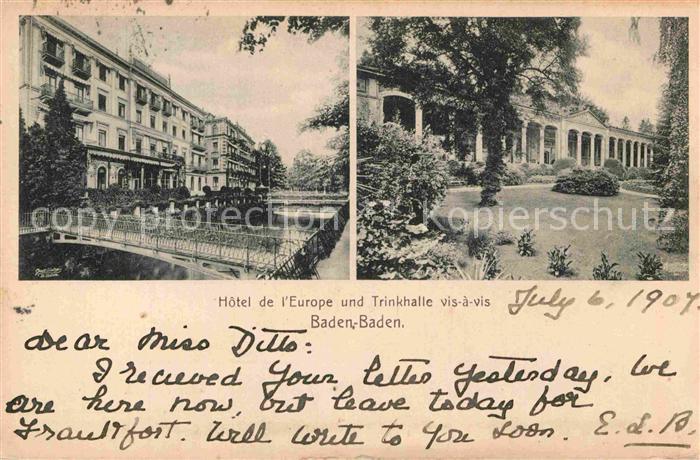 copyright kopierschutz
copyright kopierschutz
Hôtel de l'Europe und Trinkhalle vis-à-vis
Baden-Baden.
July 6, 1907
Dear Miss Ditto:
I recieved Your letter yesterday. We
are here now, but leave today for
Frankfort. Will write to You soon. E. L. B.